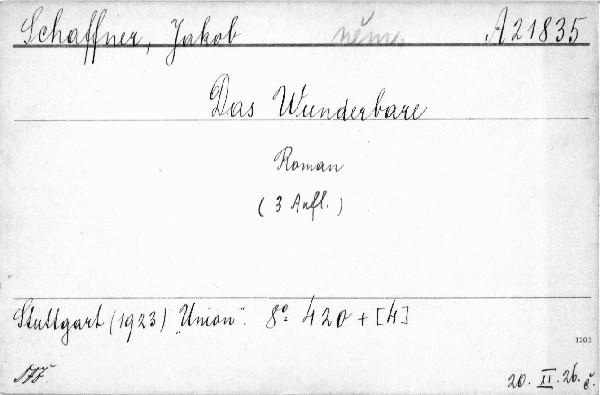 Schaffner, Jakob něm. A 21835
Das Wunderbare
Roman
(3 Aufl.)
Stuttgart (1923) "Union". 8° 420 + [4]
1203
20. XI. 26. č.